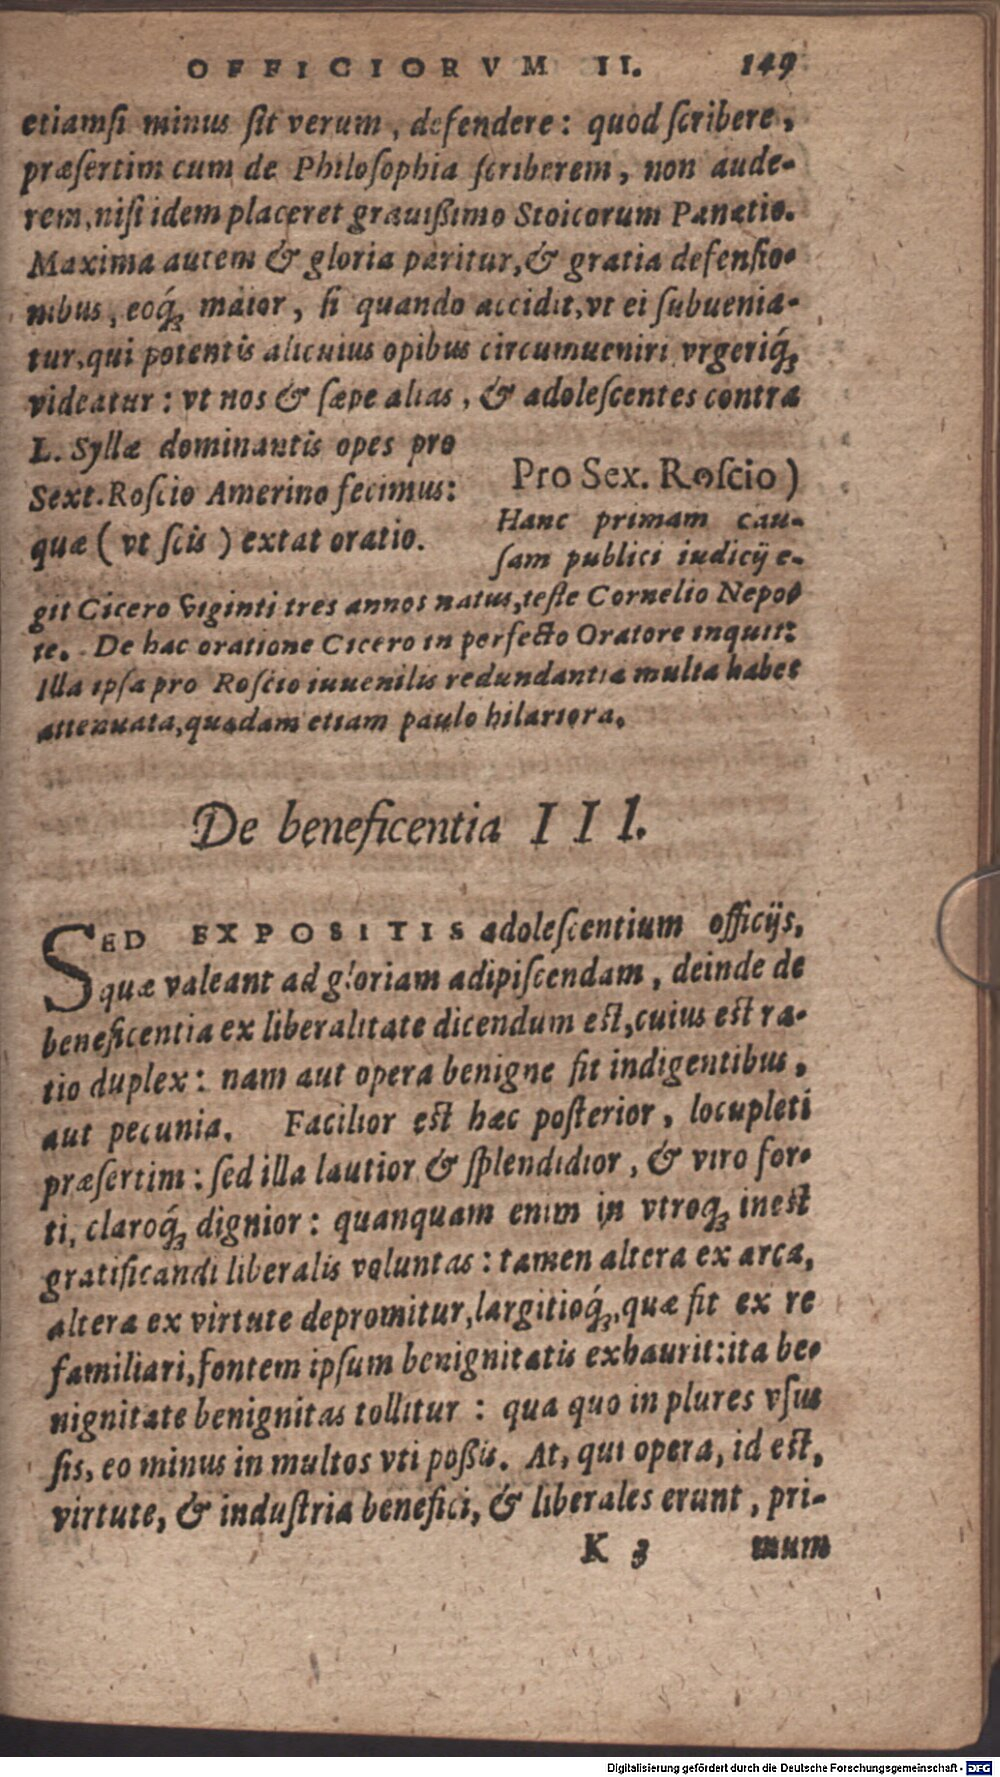 OFFICIORVM II. 149
etiamſi minus ſit verum, defendere: quod ſcribere,
præſertim cum de Philoſophia ſcriberem, non aude-
rem, niſi idem placeret grauißimo Stoicorum Panætio.
Maxima autem & gloria paritur, & gratia defenſio-
nibus, eoq́ꝫ maior, ſi quando accidit, vt ei ſubuenia-
tur, qui potentis alicuius opibus circumueniri vrgeriq́ꝫ
videatur: vt nos & ſæpe alias, & adoleſcentes contra
L. Syllæ dominantis opes pro
Sext. Roſcio Amerino fecimus:
quæ (vt ſcis) extat oratio.
Pro Sex. Roſcio)
Hanc primam cau-
ſam publici iudicij e-
git Cicero viginti tres annos natus, teſte Cornelio Nepo-
te. De hac oratione Cicero in perfecto Oratore inquit:
Illa ipſa pro Roſcio iuuenilis redundantia multa habet
attenuata, quædam etiam paulo hilariora.
De beneficentia III.
SED EXPOSITIS adoleſcentium officijs,
quæ valeant ad gloriam adipiſcendam, deinde de
beneficentia ex liberalitate dicendum eſt, cuius eſt ra-
tio duplex: nam aut opera benigne fit indigentibus,
aut pecunia. Facilior eſt hæc poſterior, locupleti
præſertim: ſed illa lautior & ſplendidior, & viro for-
ti, claroq́ꝫ dignior: quanquam enim in vtroqꝫ ineſt
gratificandi liberalis voluntas: tamen altera ex arca,
altera ex virtute depromitur, largitioq́ꝫ, quæ fit ex re
familiari, fontem ipſum benignitatis exhaurit: ita be-
nignitate benignitas tollitur: qua quo in plures vſus
ſis, eo minus in multos vti poßis. At, qui opera, id eſt,
virtute, & induſtria benefici, & liberales erunt, pri-
K 3 mum
Digitalisierung gefördert durch die Deutsche Forschungsgemeinschaft - DFG